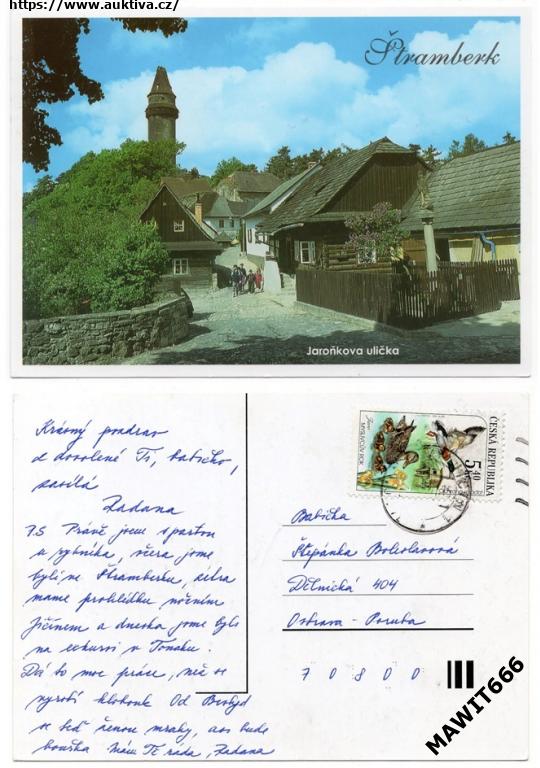 https://www.auktiva.cz/
Štramberk
Jaroňkova ulička
Krásný pozdrav
z dovolené Ti, babičko,
posílá
Zadana
P.S Právě jsem s partou
u rybníka, včera jsme
byli ve Štramberku, zítra
máme prohlídku nočním
Jičínem a dneska jsme byli
na exkurzi v Tonaku.
Dá to moc práce, než se
vyrobí klobouk. Od Beskyd
se teď ženou mraky, asi bude
bouřka. Mám Tě ráda, Zadana
ČESKÁ REPUBLIKA
5,40
Babička
Štěpánka Boleslavová
Dělnická 404
Ostrava - Poruba
70800
MAWIT666